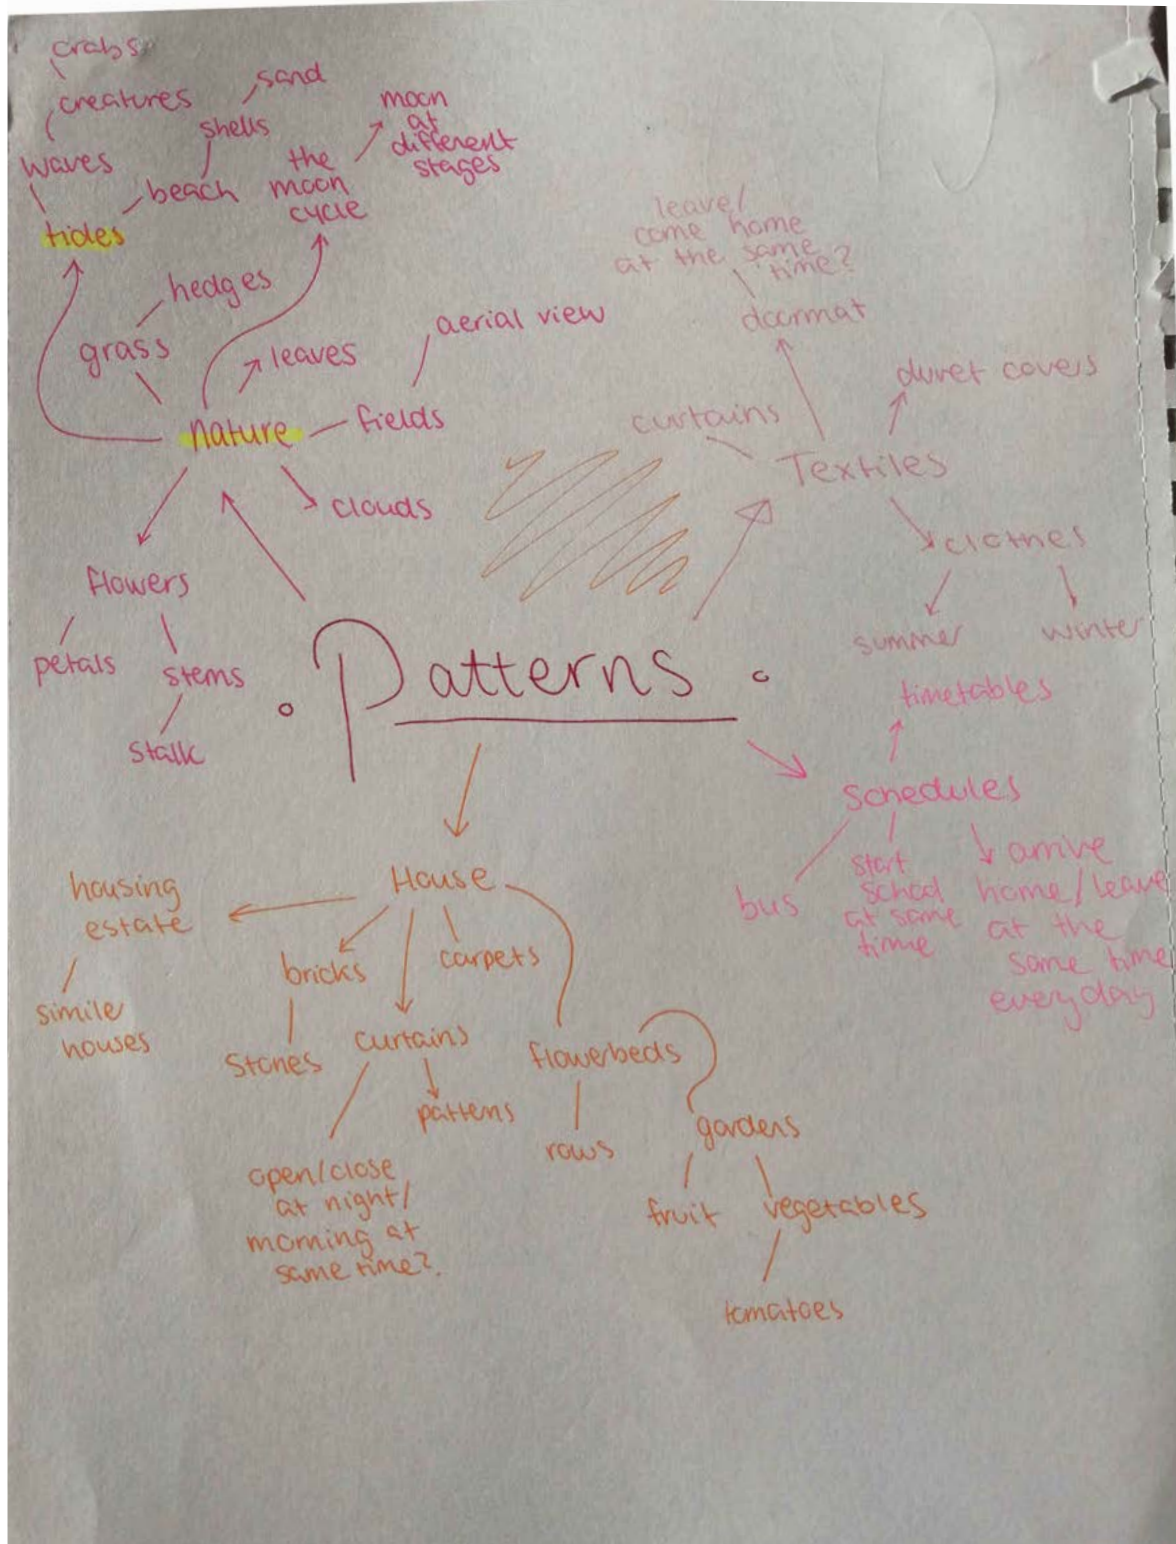 crabs
creatures
waves
tides
sand
shells
beach
the
moon
cycle
moon
at
different
stages
hedges
grass
leaves
aerial view
nature
fields
clouds
flowers
petals
stems
stalk
leave/
come home
at the same
time?
doormat
duvet covers
curtains
Textiles
clothes
summer
winter
Patterns
timetables
schedules
bus
start
school
at same
time
arrive
home/leave
at the
same time
everyday
House
housing
estate
simile
houses
bricks
Stones
carpets
curtains
patterns
open/close
at night/
morning at
same time?
flowerbeds
rows
gardens
fruit
vegetables
tomatoes